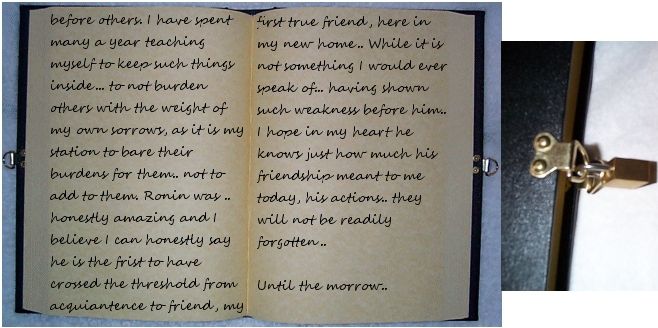 before others. I have spent
many a year teaching
myself to keep such things
inside... to not burden
others with the weight of
my own sorrows, as it is my
station to bare their
burdens for them.. not to
add to them. Ronin was ..
honestly amazing and I
believe I can honestly say
he is the frist to have
crossed the threshold from
acquiantence to friend, my
first true friend, here in
my new home.. While it is
not something I would ever
speak of... having shown
such weakness before him..
I hope in my heart he
knows just how much his
friendship meant to me
today, his actions.. they
will not be readily
forgotten..
Until the morrow..